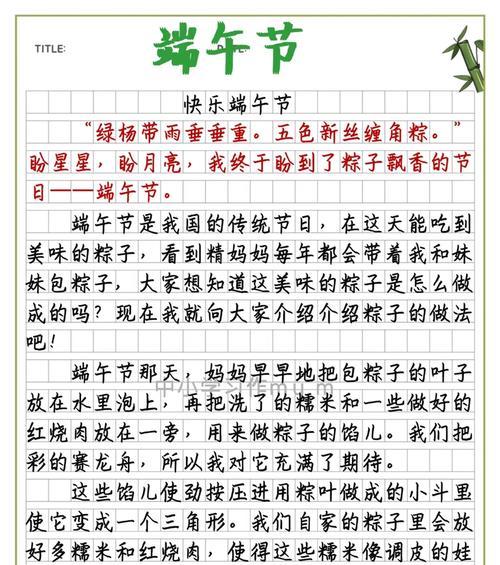 端午节
TITLE:
快乐端午节
“绿杨带雨垂垂重。五色新丝缠角粽。”
盼星星，盼月亮，我终于盼到了粽子飘香的节
日——端午节。
端午节是我国的传统节日，在这天能吃到
美味的粽子，看到精妈妈每年都会带着我和妹
妹包粽子，大家想知道这美味的粽子是怎么做
成的吗？现在我就向大家介绍介绍粽子的做法
吧！
端午节那天，妈妈早早地把包粽子的叶子
放在水里泡上，再把洗了的糯米和一些做好的
红烧肉放在一旁，用来做粽子的馅儿。我们把
彩的赛龙舟，所以我对它充满了期待。
这些馅儿使劲按压进用粽叶做成的小斗里
使它变成一个三角形。我们自家的粽子里会放
好多糯米和红烧肉，使得这些糯米像调皮的娃